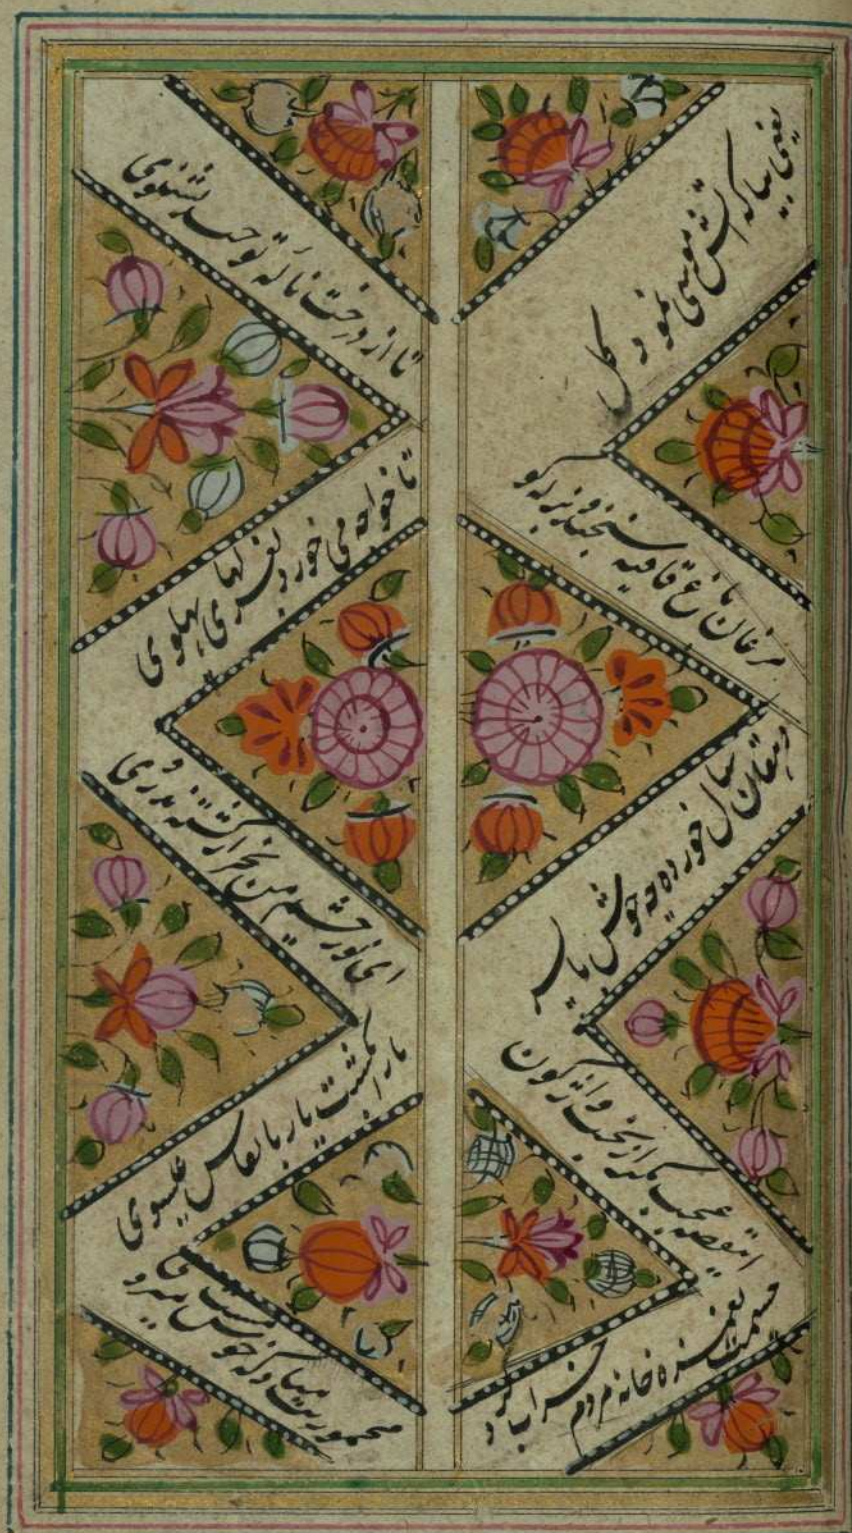 یعنی بیا که اتش موسی نمود گل
تا از درخت ناله توحید بشنوی
مرغان باغ قافیه سنجند و بزله کو
تا خواجه می خورد بغزلهای پهلوی
دهقان سال خورده چه خوش با پسر
ای نور چشم من بجز از کشته ندروی
این قصه عجب از بخت واژکون
مارا بکشت یار بانفاس عیسوی
چشمت بغمزه خانه مردم خراب کرد
مخموریت مباد که خوش مست میروی